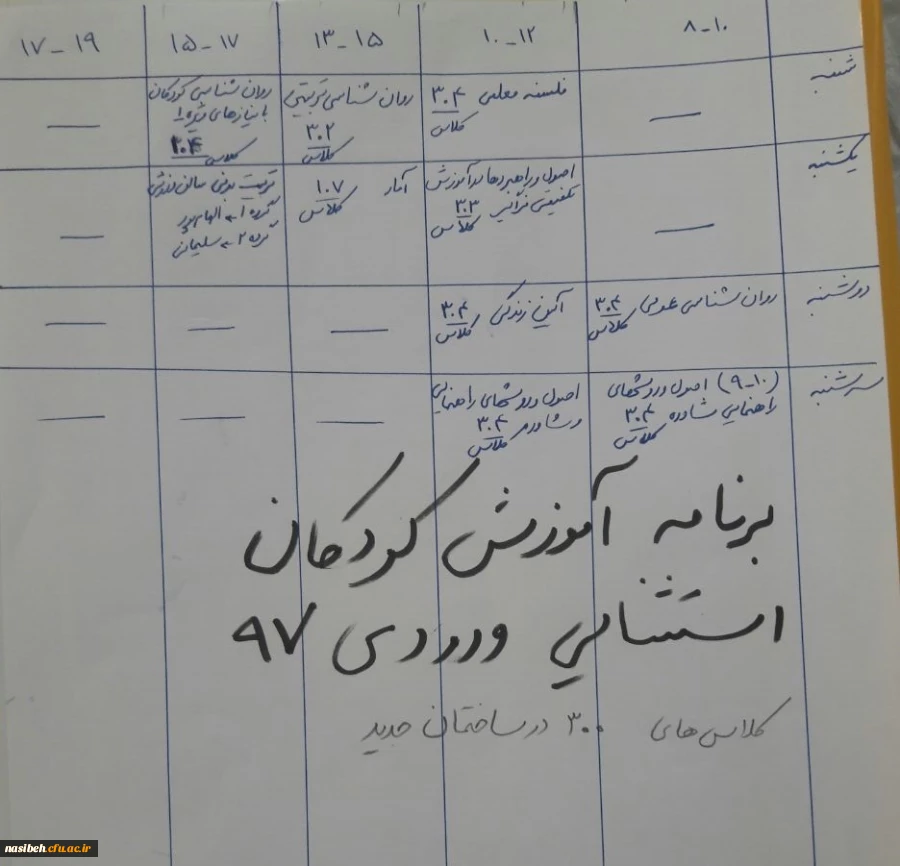 ۸-۱۰ ۱۰-۱۲ ۱۳-۱۵ ۱۵-۱۷ ۱۷-۱۹
شنبه
فلسفه معلمی ۳۰۴
کلاس
روان شناسی تربیتی
۳۰۲
کلاس
روان شناسی کودکان
با نیازهای ویژه ۱
کلاس ۳۰۴
یکشنبه
اصول و راهبردها در آموزش
کلاس ۳۰۳
آمار ۱۰۷
کلاس
تربیت بدنی سالن ورزشی
گروه ۱
گروه ۲ سلیمانی
دوشنبه
روان شناسی عمومی ۳۰۴
کلاس
آئین زندگی ۳۰۴
کلاس
سه شنبه
(۹-۱۰) اصول و روشهای
راهنمایی مشاوره ۳۰۴
کلاس
اصول و روشهای راهنمایی
و مشاوره ۳۰۴
کلاس
برنامه آموزش کودکان
استثنایی ورودی ۹۷
کلاس های ۳۰۰ در ساختمان جدید
nasibeh.cfu.ac.ir